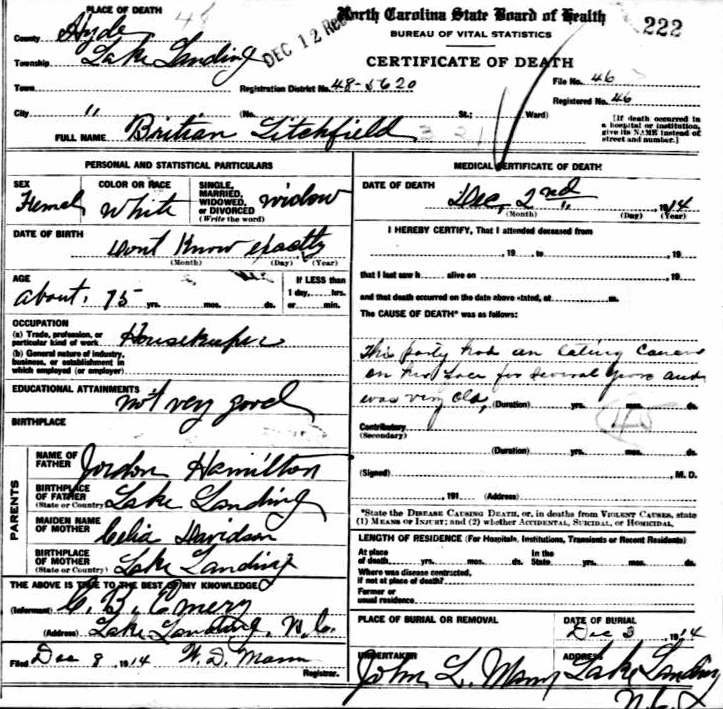 PLACE OF DEATH 48
North Carolina State Board of Health
222
BUREAU OF VITAL STATISTICS
DEC 12 Rec
CERTIFICATE OF DEATH
County Hyde
Township Lake Landing
Town
Registration District No. 48-5620
File No. 46
Registered No. 46
City "
(No.
St.;
Ward)
[If death occurred in a hospital or institution, give its NAME instead of street and number.]
FULL NAME Britian Litchfield
PERSONAL AND STATISTICAL PARTICULARS
SEX
Femal
COLOR OR RACE
White
SINGLE, MARRIED, WIDOWED, or DIVORCED
(Write the word)
widow
DATE OF BIRTH
Dont Know exactly
(Month) (Day) (Year)
AGE
about 75 yrs. mos. ds.
If LESS than
1 day, hrs.
or min.
OCCUPATION
(a) Trade, profession, or
particular kind of work Housekeeper
(b) General nature of industry,
business, or establishment in
which employed (or employer)
EDUCATIONAL ATTAINMENTS
not very good
BIRTHPLACE
PARENTS
NAME OF
FATHER Jordon Hamilton
BIRTHPLACE
OF FATHER
(State or Country) Lake Landing
MAIDEN NAME
OF MOTHER Celia Davidson
BIRTHPLACE
OF MOTHER
(State or Country) Lake Landing
THE ABOVE IS TRUE TO THE BEST OF MY KNOWLEDGE
(Informant) C. B. Emery
(Address) Lake Landing, N.C.
Filed Dec 8, 1914 W. D. Mann
Registrar.
MEDICAL CERTIFICATE OF DEATH
DATE OF DEATH
Dec, 2nd, 1914
(Month) (Day) (Year)
I HEREBY CERTIFY, That I attended deceased from
, 19 to , 19
that I last saw h alive on , 19
and that death occurred on the date above stated, at m.
The CAUSE OF DEATH* was as follows:
This party had an Eating Cancer
on her face for several years and
was very old, (Duration) yrs. mos. ds.
45
Contributory
(Secondary)
(Duration) yrs. mos. ds.
(Signed) , M. D.
, 191 (Address)
*State the DISEASE CAUSING DEATH, or, in deaths from VIOLENT CAUSES, state
(1) MEANS OF INJURY; and (2) whether ACCIDENTAL, SUICIDAL, OR HOMICIDAL.
LENGTH OF RESIDENCE (For Hospitals, Institutions, Transients or Recent Residents)
At place
of death yrs. mos. ds.
In the
State yrs. mos. ds.
Where was disease contracted,
if not at place of death?
Former or
usual residence
PLACE OF BURIAL OR REMOVAL
DATE OF BURIAL
Dec 3, 1914
UNDERTAKER
John L. Mann
ADDRESS
Lake Landing
N.C.